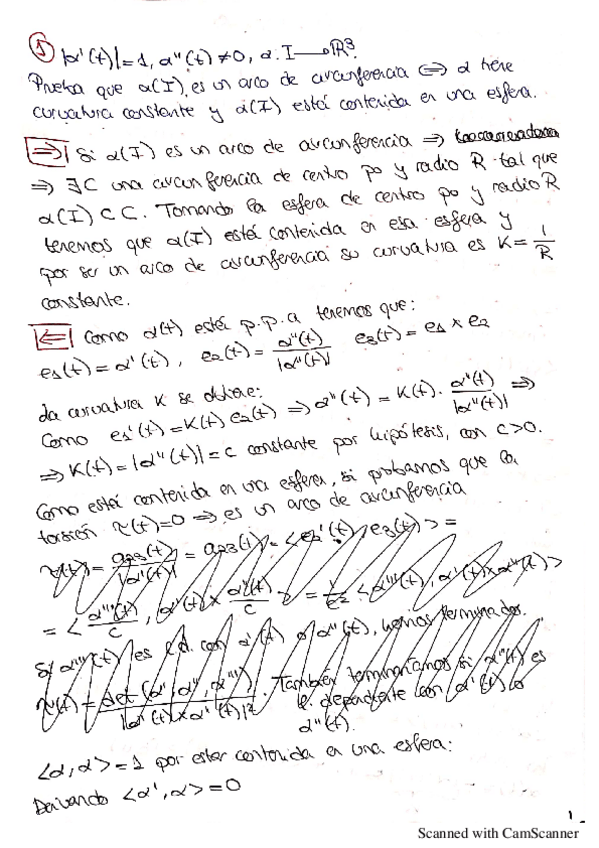 ① |α'(t)|=1, α''(t)≠0, α: I→ℝ³.
Prueba que α(I) es un arco de circunferencia ⇔ α tiene
curvatura constante y α(I) está contenida en una esfera.
⇒| Si α(I) es un arco de circunferencia ⇒
⇒ ∃C una circunferencia de centro p₀ y radio R tal que
α(I) ⊂ C. Tomando la esfera de centro p₀ y radio R
tenemos que α(I) está contenida en esa esfera y
por ser un arco de circunferencia su curvatura es K = 1/R
constante.
⇐| Como α(t) está p.p.a tenemos que:
e₁(t) = α'(t), e₂(t) = α''(t)/|α''(t)| e₃(t) = e₁ × e₂
La curvatura K se obtiene:
Como e₁'(t) = K(t) e₂(t) ⇒ α''(t) = K(t) · α''(t)/|α''(t)| ⇒
⇒ K(t) = |α''(t)| = c constante por hipótesis, con c>0.
Como está contenida en una esfera, si probamos que la
torsión τ(t)=0 ⇒ es un arco de circunferencia
τ(t) = a₂₃(t)/|α'(t)| = a₂₃(t) = <e₂'(t), e₃(t)> =
= < α'''(t)/c , α'(t) × α''(t)/c > = 1/c² <α'''(t), α'(t)×α''(t)>
Si α'''(t) es l.d. con α'(t) o α''(t), hemos terminado.
τ(t) = det(α', α'', α''')/|α'(t)×α''(t)|². También terminaríamos si α'''(t) es
l. dependiente con α'(t) o
α''(t).
<α, α> = 1 por estar contenida en una esfera:
Derivando <α', α> = 0
1
Scanned with CamScanner